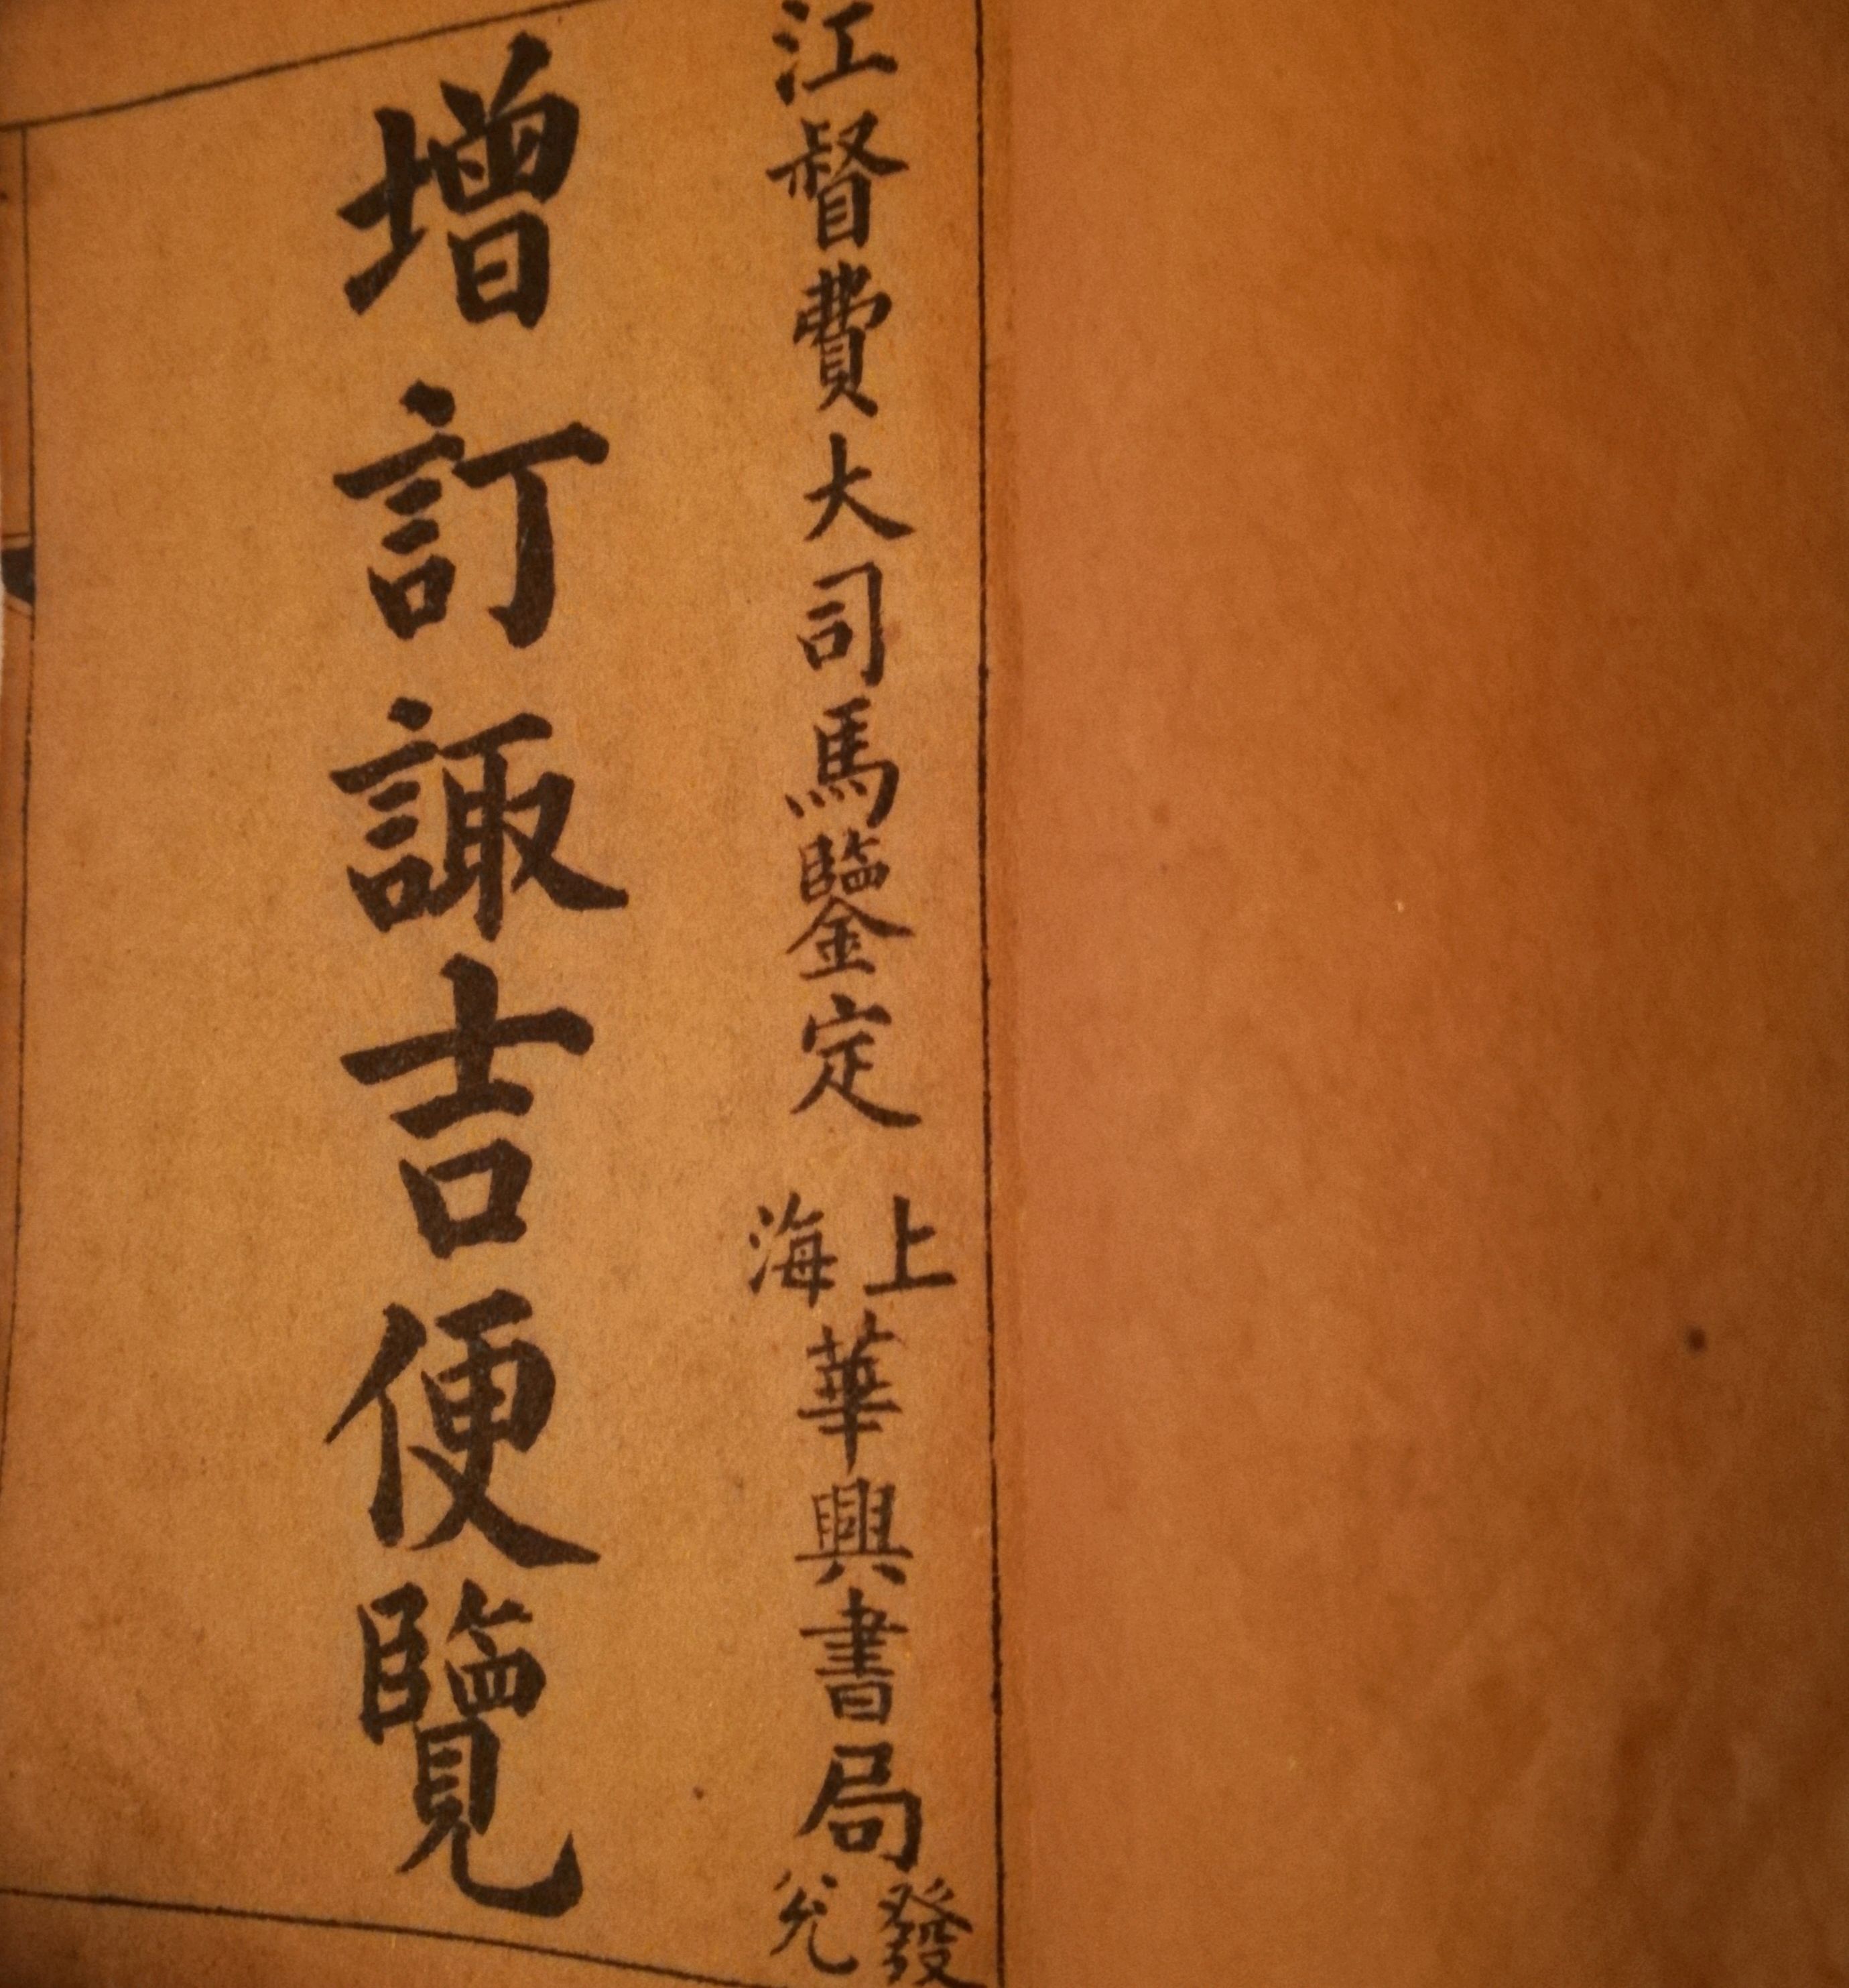 江督費大司馬鑒定
上海
華興書局
發兌
增訂諏吉便覽